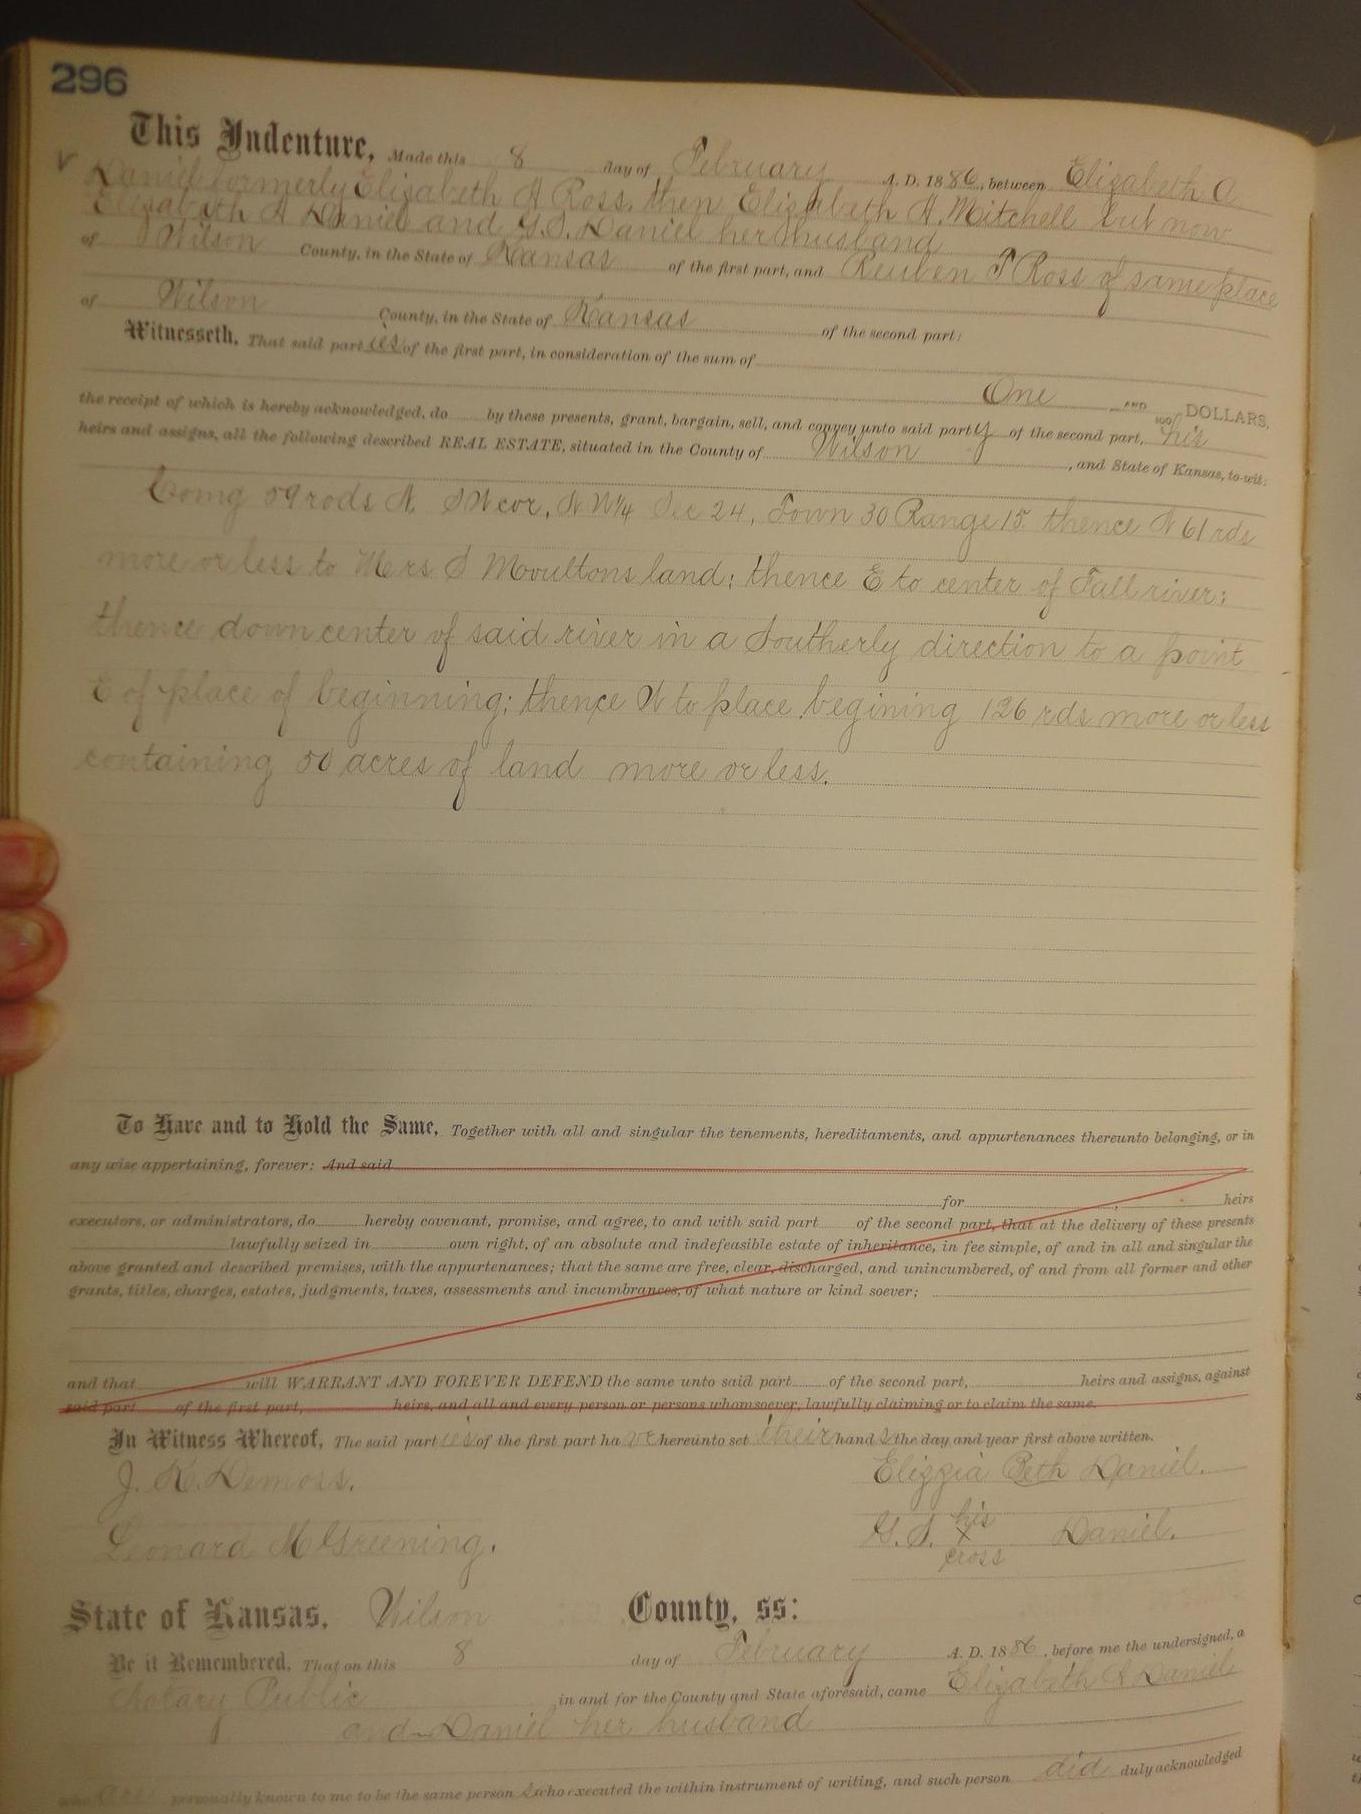 296
This Indenture, Made this 8 day of February A. D. 1886, between Elizabeth A
Daniel formerly Elizabeth A Ross, then Elizabeth A. Mitchell but now
Elizabeth A Daniel and G.S. Daniel her husband
of Wilson County, in the State of Kansas of the first part, and Reuben T Ross of same place
of Wilson County, in the State of Kansas of the second part:
Witnesseth, That said parties of the first part, in consideration of the sum of
One AND /100 DOLLARS,
the receipt of which is hereby acknowledged, do by these presents, grant, bargain, sell, and convey unto said party of the second part, his
heirs and assigns, all the following described REAL ESTATE, situated in the County of Wilson, and State of Kansas, to-wit:
Comg 59 rods N. SW cor, N W 1/4 Sec 24, Town 30 Range 15 thence N 61 rds
more or less to Mrs S Moultons land; thence E to center of Fall river;
thence down center of said river in a Southerly direction to a point
E of place of beginning; thence W to place begining 126 rds more or less
containing 50 acres of land more or less.
To Have and to Hold the Same, Together with all and singular the tenements, hereditaments, and appurtenances thereunto belonging, or in
any wise appertaining, forever: And said
for heirs
executors, or administrators, do hereby covenant, promise, and agree, to and with said part of the second part, that at the delivery of these presents
lawfully seized in own right, of an absolute and indefeasible estate of inheritance, in fee simple, of and in all and singular the
above granted and described premises, with the appurtenances; that the same are free, clear, discharged, and unincumbered, of and from all former and other
grants, titles, charges, estates, judgments, taxes, assessments and incumbrances, of what nature or kind soever;
and that will WARRANT AND FOREVER DEFEND the same unto said part of the second part, heirs and assigns, against
said part of the first part, heirs, and all and every person or persons whomsoever, lawfully claiming or to claim the same.
In Witness Whereof, The said parties of the first part have hereunto set their hands the day and year first above written.
J. K. Demoss. Elizzia Beth Daniel.
Leonard M Greening. G. S. his x cross Daniel.
State of Kansas, Wilson County, ss:
Be it Remembered, That on this 8 day of February A. D. 1886, before me the undersigned, a
Notary Public in and for the County and State aforesaid, came Elizabeth Daniel
and Daniel her husband
who are personally known to me to be the same persons who executed the within instrument of writing, and such person did duly acknowledged